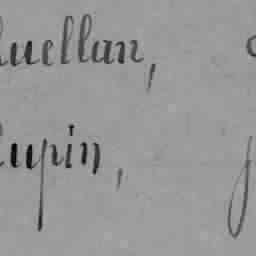 uellan,
upin,